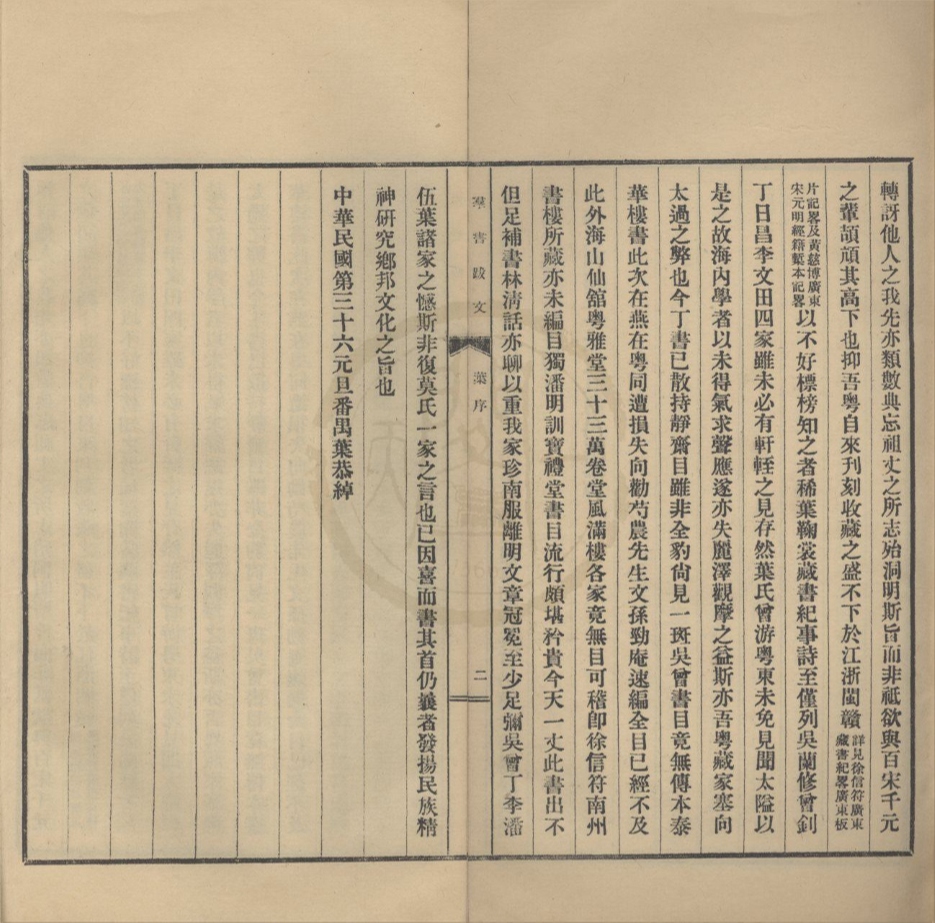 轉訝他人之我先亦類數典忘祖丈之所志殆洞明斯旨而非祗欲與百宋千元
之輩頡頏其高下也抑吾粵自來刊刻收藏之盛不下於江浙閩贛詳見徐信符廣東藏書紀畧廣東板
片記畧及黃慈博廣東宋元明經籍槧本記畧以不好標榜知之者稀葉鞠裳藏書紀事詩至僅列吳蘭修曾釗
丁日昌李文田四家雖未必有軒輊之見存然葉氏曾游粵東未免見聞太隘以
是之故海內學者以未得氣求聲應遂亦失麗澤觀摩之益斯亦吾粵藏家塞向
太過之弊也今丁書已散持靜齋目雖非全豹尙見一斑吳曾書目竟無傳本泰
華樓書此次在燕在粵同遭損失向勸芍農先生文孫勁庵速編全目已經不及
此外海山仙舘粵雅堂三十三萬卷堂風滿樓各家竟無目可稽卽徐信符南州
書樓所藏亦未編目獨潘明訓寶禮堂書目流行頗堪矜貴今天一丈此書出不
但足補書林淸話亦聊以重我家珍南服離明文章冠冕至少足彌吳曾丁李潘
羣書跋文 葉序 二
伍葉諸家之憾斯非復莫氏一家之言也已因喜而書其首仍義者發揚民族精
神研究鄉邦文化之旨也
中華民國第三十六元旦番禺葉恭綽